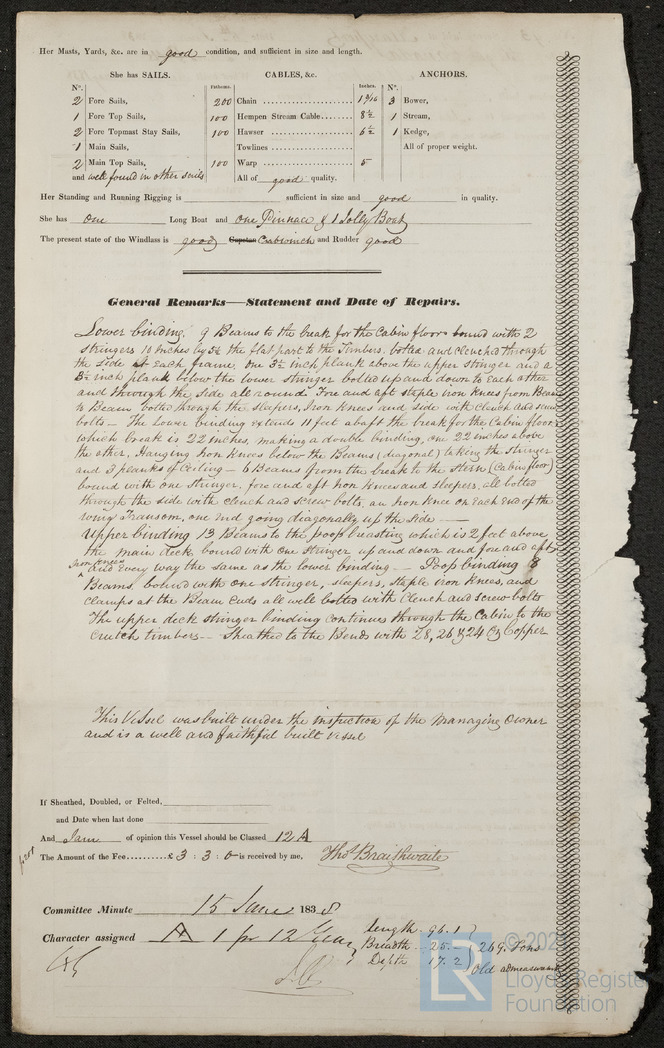 Her Masts, Yards, &c. are in good condition, and sufficient in size and length.
She has SAILS. CABLES, &c. ANCHORS.
N°. Fathoms. Inches. N°.
2 Fore Sails, 200 Chain 1 3/16 3 Bower,
1 Fore Top Sails, 100 Hempen Stream Cable 8½ 1 Stream,
2 Fore Topmast Stay Sails, 100 Hawser 6½ 1 Kedge,
1 Main Sails, Towlines All of proper weight.
2 Main Top Sails, 100 Warp 5
and well found in other sails All of good quality.
Her Standing and Running Rigging is sufficient in size and good in quality.
She has one Long Boat and one Pinnace & 1 Jolly Boat
The present state of the Windlass is good Capstan Crabwinch and Rudder good
General Remarks—Statement and Date of Repairs.
Lower binding. 9 Beams to the break for the Cabin floor bound with 2
stringers 10 inches by 5½ the flat part to the Timbers, bolted and clenched through
the Side at each frame, one 3½ inch plank above the upper stringer and a
3½ inch plank below the lower stringer bolted up and down to each other
and through the Side all round. Fore and aft staple iron knees from Beam
to Beam bolted through the sleepers, Iron knees and side with Clench and screw
bolts — The Lower binding extends 11 feet abaft the break for the Cabin floor,
which break is 22 inches, making a double binding, one 22 inches above
the other, Hanging iron knees below the Beams (diagonal) taking the stringer
and 3 planks of Ceiling — 6 Beams from the break to the Stern (Cabin floor)
bound with one stringer, fore and aft iron knees and sleepers, all bolted
through the side with clench and screw bolts, an iron knee on each end of the
wing Transom, one End going diagonally up the Side —
Upper binding 13 Beams to the poop breasting which is 2 feet above
the main deck, bound with one Stringer up and down and fore and aft
Iron knees and Every way the same as the lower binding — Poop binding 8
Beams, bound with one stringer, sleepers, staple iron knees, and
clamps at the Beam Ends all well bolted with Clench and screw bolts
The upper deck stringer binding continues through the Cabin to the
Crutch timbers — Sheathed to the Bends with 28, 26 & 24 Oz Copper
This Vessel was built under the inspection of the Managing Owner
and is a well and faithful built Vessel
If Sheathed, Doubled, or Felted,
and Date when last done
And I am of opinion this Vessel should be Classed 12 A
The Amount of the Fee £ 3 : 3 : 0 is received by me, Thos. Braithwaite
Committee Minute 15 June 1838
Character assigned A 1 for 12 Years
length 96.1
Breadth 25.-
Depth 17.2
269 Tons
Old admeasurement
© 202
Lloyd's Register
Foundation
LR